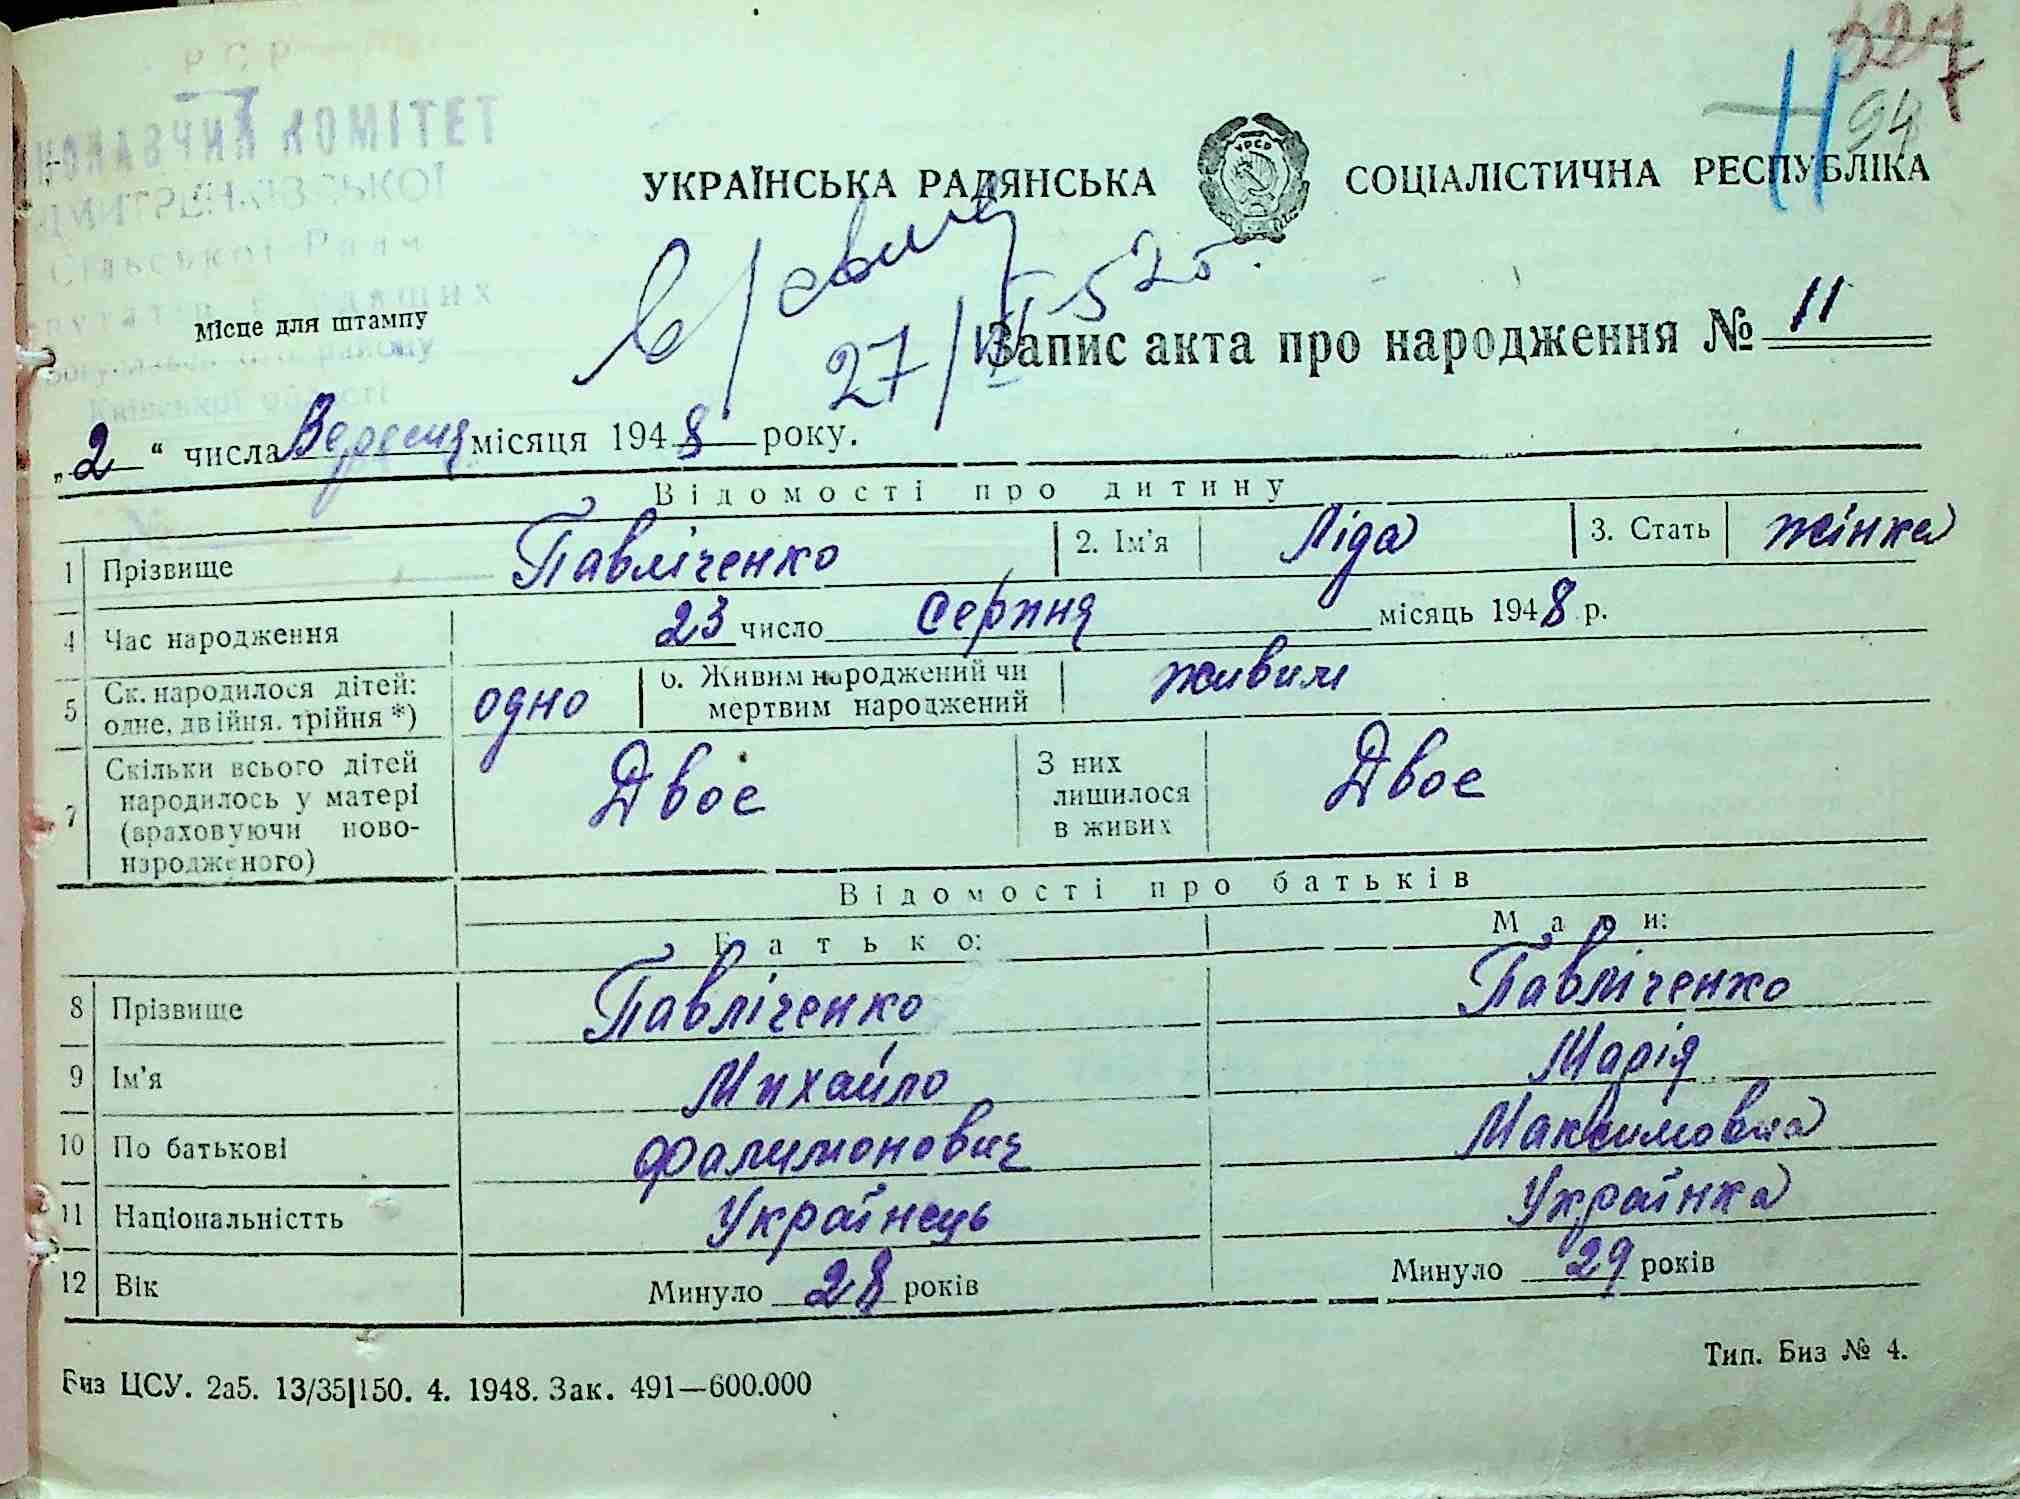 227
94
ВИКОНАВЧИЙ КОМІТЕТ
ДМИТРЕНКІВСЬКОЇ
Сільської Ради
УКРАЇНСЬКА РАДЯНСЬКА СОЦІАЛІСТИЧНА РЕСПУБЛІКА
Місце для штампу
Київської області
27/VII 52 Запис акта про народження № 11
„2“ числа Вересня місяця 1948 року.
Відомості про дитину
1 Прізвище Павліченко 2. Ім'я Ліда 3. Стать жінка
4 Час народження 23 число серпня місяць 1948 р.
5 Ск. народилося дітей: одно 6. Живим народжений чи живим
одне, двійня, трійня *) мертвим народжений
7 Скільки всього дітей Двоє З них Двоє
народилось у матері лишилося
(враховуючи ново- в живих
народженого)
Відомості про батьків
Батько: Мати:
8 Прізвище Павліченко Павліченко
9 Ім'я Михайло Марія
10 По батькові Фалимонович Максимовна
11 Національністть Українець Українка
12 Вік Минуло 28 років Минуло 29 років
Биз ЦСУ. 2а5. 13/35|150. 4. 1948. Зак. 491—600.000
Тип. Биз № 4.